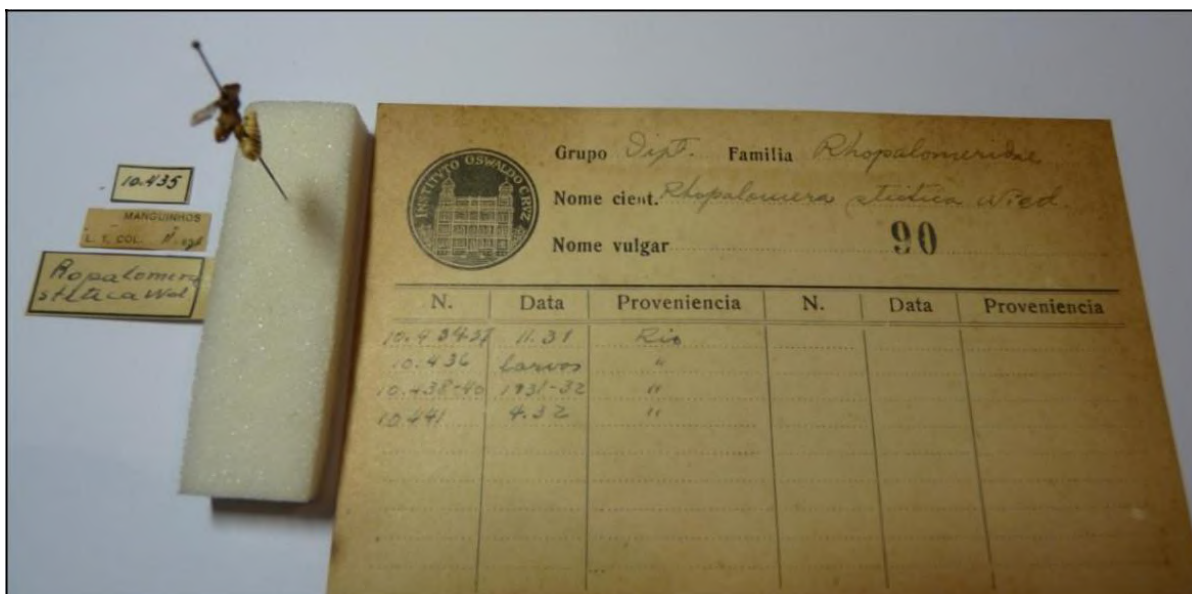 10.435
MANGUINHOS
L. T. COL.
Ropalomera
stitica Wd
INSTITVTO OSWALDO CRVZ
Grupo Dipt. Familia Rhopalomeridae
Nome cient. Rhopalomera stictica Wied.
Nome vulgar 90
N. Data Proveniencia N. Data Proveniencia
10.434-37 11.31 Rio
10.436 larvos "
10.438-40 1931-32 "
10.441 4.32 "